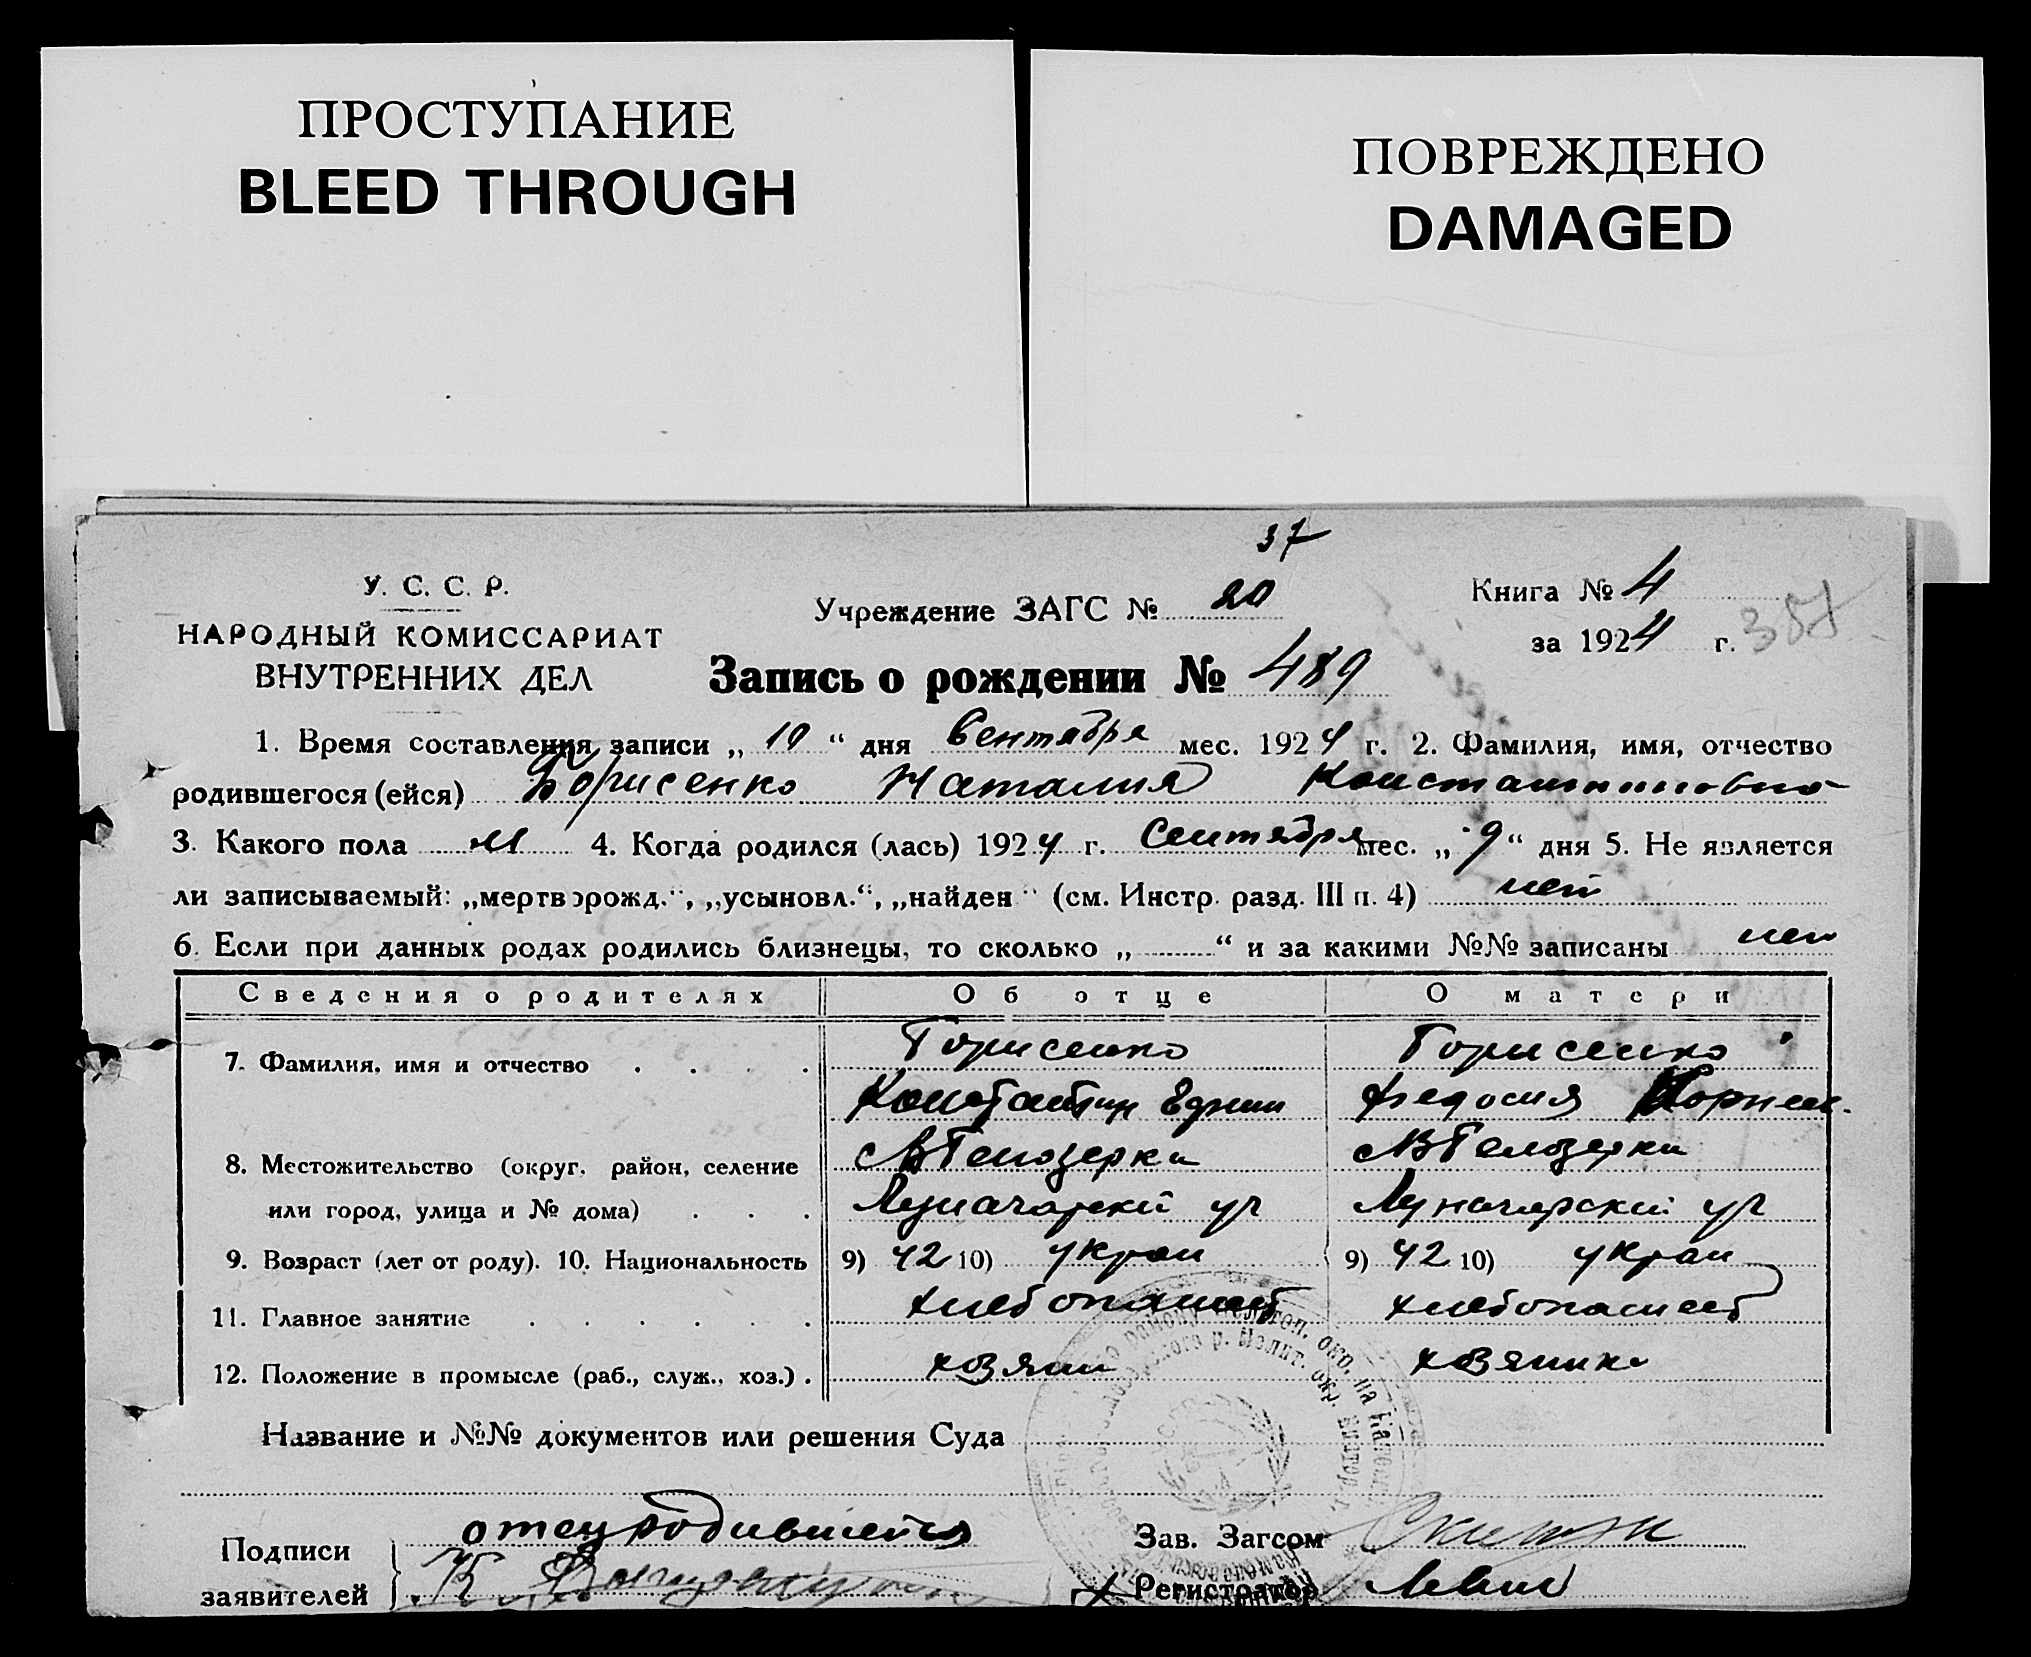 ПРОСТУПАНИЕ
BLEED THROUGH
ПОВРЕЖДЕНО
DAMAGED
37
У. С. С. Р.
НАРОДНЫЙ КОМИССАРИАТ
ВНУТРЕННИХ ДЕЛ
Учреждение ЗАГС № 20
Книга № 4
за 1924 г.
Запись о рождении № 489
1. Время составления записи „ 10 “ дня Сентября мес. 1924 г. 2. Фамилия, имя, отчество
родившегося (ейся) Борисенко Наталия Константиновна
3. Какого пола 4. Когда родился (лась) 1924 г. Сентября мес. „ 9 “ дня 5. Не является
ли записываемый: „мертворожд.“, „усыновл.“, „найден“ (см. Инстр. разд. III п. 4) нет
6. Если при данных родах родились близнецы, то сколько „ “ и за какими №№ записаны нет
Сведения о родителях Об отце О матери
7. Фамилия, имя и отчество Борисенко Борисенко
Константин Федосия Корнеев.
8. Местожительство (округ, район, селение Белозерка Белозерка
или город, улица и № дома) Луначарский Луначарский
9. Возраст (лет от роду). 10. Национальность 9) 42 10) Украи 9) 42 10) Украи
11. Главное занятие хлебопашест хлебопашест
12. Положение в промысле (раб., служ., хоз.) хозяин хозяйка
Название и №№ документов или решения Суда
Подписи
заявителей
отец родившейся
К
Зав. Загсом
Регистратор